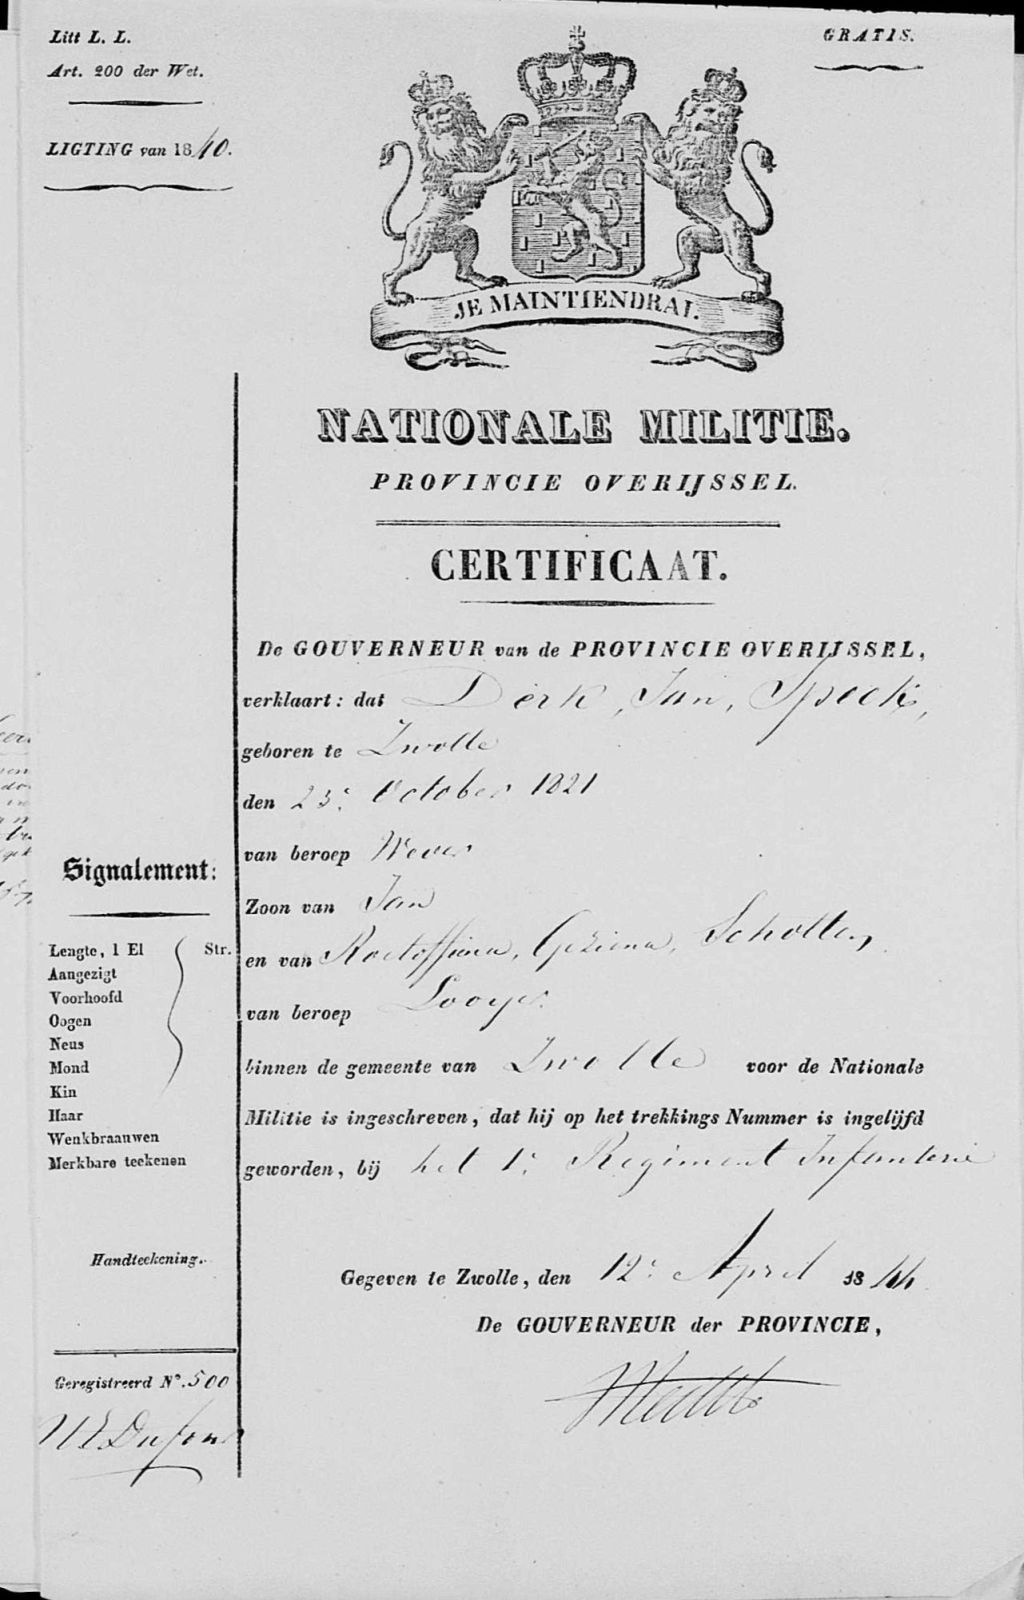 Litt L. L.
Art. 200 der Wet.
LIGTING van 1840.
GRATIS.
JE MAINTIENDRAI.
NATIONALE MILITIE.
PROVINCIE OVERIJSSEL.
CERTIFICAAT.
De GOUVERNEUR van de PROVINCIE OVERIJSSEL,
verklaart: dat Derk, Jan, Spock,
geboren te Zwolle
den 23e October 1821
van beroep Wever
Zoon van Jan
en van Geziena, Scholten
van beroep Looyer
binnen de gemeente van Zwolle voor de Nationale
Militie is ingeschreven, dat hij op het trekkings Nummer is ingelijfd
geworden, bij het 1e Regiment Infanterie
Gegeven te Zwolle, den 12e April 1844
De GOUVERNEUR der PROVINCIE,
Signalement:
Lengte, 1 El Str.
Aangezigt
Voorhoofd
Oogen
Neus
Mond
Kin
Haar
Wenkbraauwen
Merkbare teekenen
Handteekening.
Geregistreerd No. 500
Dufour